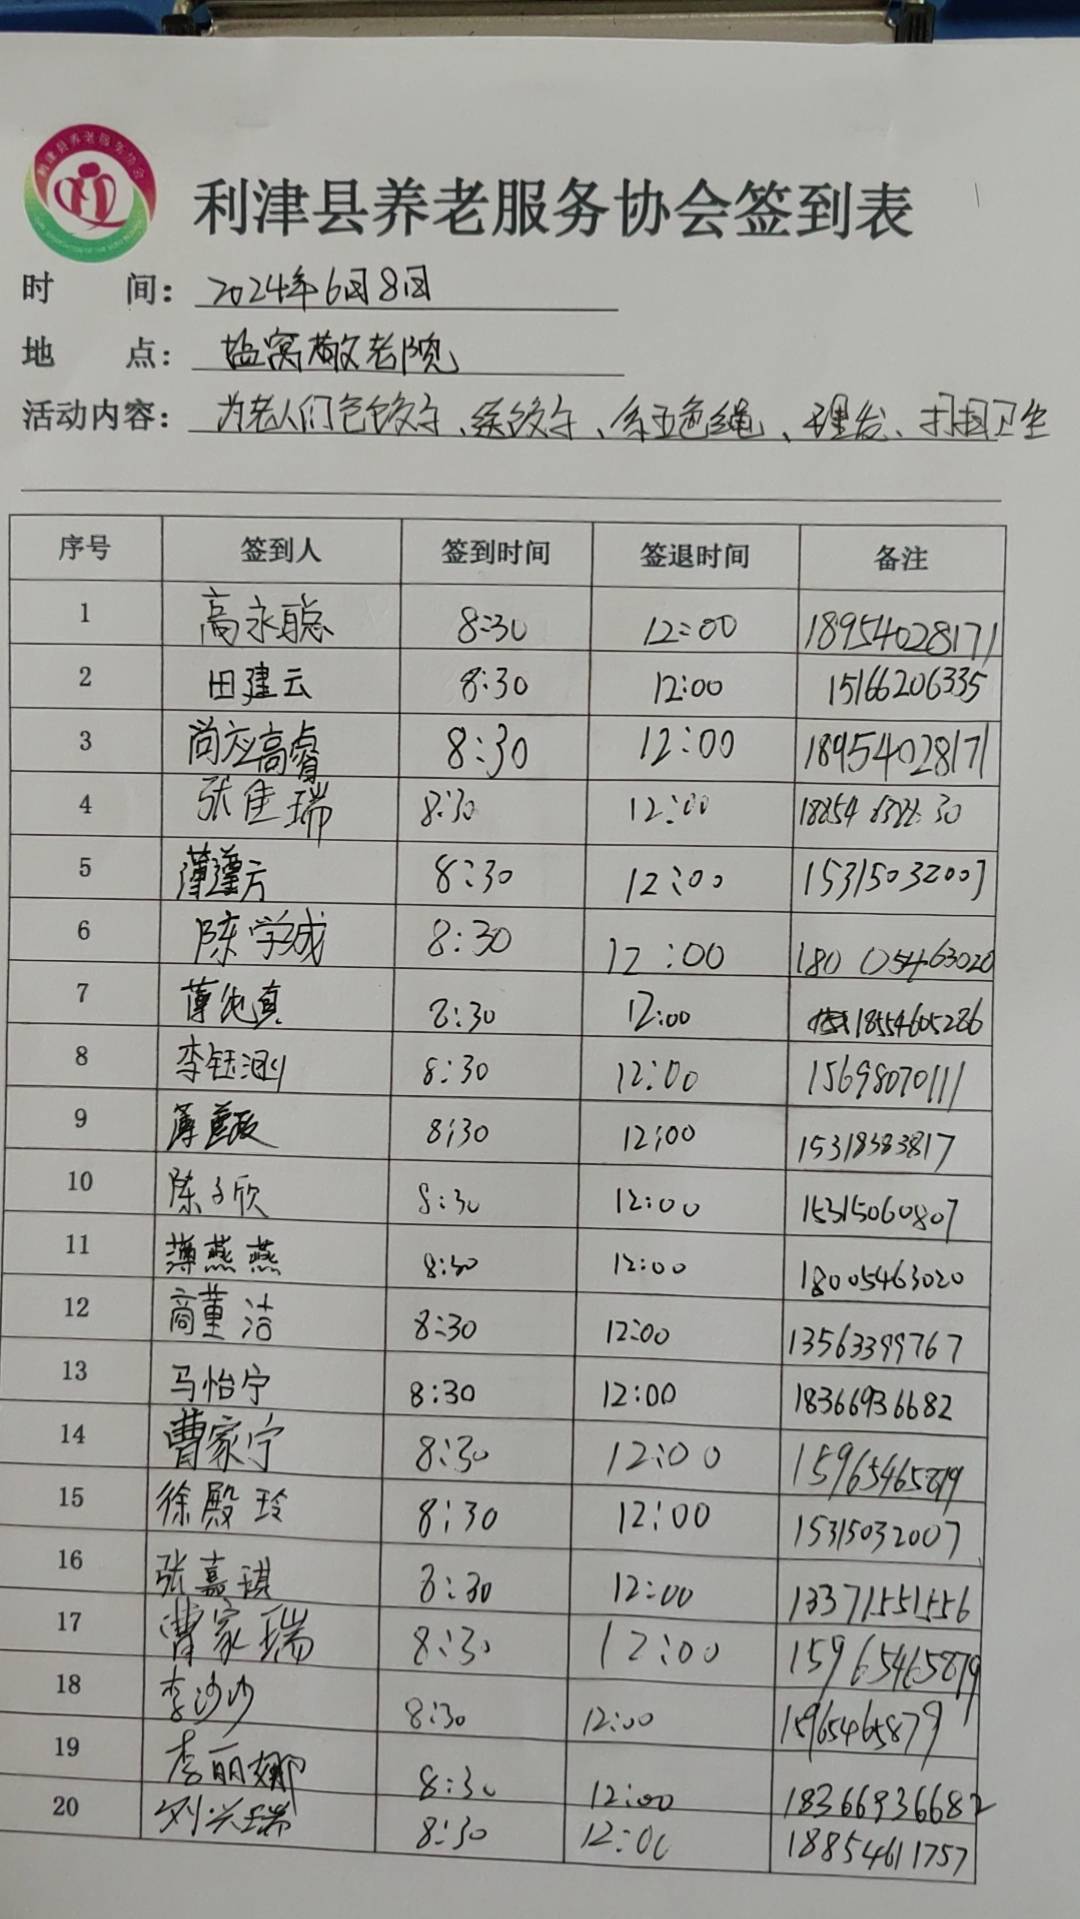 利津县养老服务协会
利津县养老服务协会签到表
时 间: 2024年6月8日
地 点: 盐窝敬老院
活动内容: 为老人们包饺子、煮饺子、系五色绳、理发、打扫卫生
序号 签到人 签到时间 签退时间 备注
1 高永聪 8:30 12:00 18954028171
2 田建云 8:30 12:00 15166206335
3 尚应高睿 8:30 12:00 18954028171
4 张佳瑞 8:30 12:00
5 薄谨方 8:30 12:00 15315032007
6 陈学成 8:30 12:00 18005463020
7 薄纯真 8:30 12:00 18554605286
8 李钰 8:30 12:00 15698070111
9 薄 8:30 12:00 15318383817
10 陈子欣 8:30 12:00 15315060807
11 薄燕燕 8:30 12:00 18005463020
12 商董洁 8:30 12:00 13563399767
13 马怡宁 8:30 12:00 18366936682
14 曹家宁 8:30 12:00 15965465879
15 徐殿玲 8:30 12:00 15315032007
16 张嘉琪 8:30 12:00 13371551556
17 曹家瑞 8:30 12:00 15965465879
18 李沙沙 8:30 12:00 15965465879
19 李丽娜 8:30 12:00 18366936682
20 刘兴瑞 8:30 12:00 18854611757